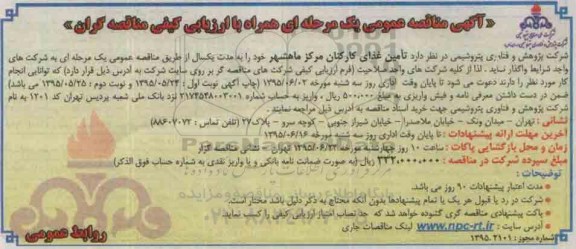 « آگهی مناقصه عمومی یک مرحله ای همراه با ارزیابی کیفی مناقصه گران »
شرکت پژوهش و فناوری پتروشیمی در نظر دارد تامین غذای کارکنان مرکز ماهشهر خود را به مدت یکسال از طریق مناقصه عمومی یک مرحله ای به شرکت های
واجد شرایط واگذار نماید . لذا از کلیه شرکت های واجد صلاحیت (فرم ارزیابی کیفی شرکت های مناقصه گر بر روی سایت شرکت به آدرس ذیل قرار دارد) که توانایی انجام
کار مورد نظر را دارند دعوت می شود تا پایان وقت اداری روز سه شنبه مورخه ۱۳۹۵/۰۶/۰۲ (چاپ آگهی نوبت اول : ۱۳۹۵/۰۵/۲۴ و نوبت دوم : ۱۳۹۵/۰۵/۲۵ می باشد)
ضمن در دست داشتن معرفی نامه و فیش واریزی به مبلغ ۵۰۰۰۰۰ ریال ، واریز به حساب شماره ۲۱۷۲۵۴۸۰۰۲۰۰۱ نزد بانک ملی شعبه پردیس تهران کد ۱۲۰۱ به نام
شرکت پژوهش و فناوری پتروشیمی جهت خرید اسناد مناقصه به آدرس ذیل مراجعه نمایند .
نشانی : تهران – میدان ونک – خیابان ملاصدرا – خیابان شیراز جنوبی – کوچه سرو – پلاک ۲۷ (تلفن تماس : ۸۸۶۰۷۰۷۲)
آخرین مهلت ارائه پیشنهادات : تا پایان وقت اداری روز سه شنبه مورخه ۱۳۹۵/۰۶/۱۶
زمان و محل بازگشایی پاکات : ساعت ۱۰ روز چهارشنبه مورخه ۱۳۹۵/۰۶/۲۴ تهران – نشانی مناقصه گزار
مبلغ سپرده شرکت در مناقصه : ۳۳۲،۰۰۰،۰۰۰ ریال (به صورت ضمانت نامه بانکی و یا واریز نقدی به شماره حساب فوق الذکر)
توضیحات :
• مدت اعتبار پیشنهادات ۹۰ روز می باشد.
• شرکت در رد یا قبول هر یک یا تمام پیشنهادها بدون آنکه محتاج به ذکر دلیل باشد مختار است.
• پاکت پیشنهادی مناقصه گری گشوده خواهد شد که حد نصاب امتیاز ارزیابی کیفی را کسب نماید.
• آدرس سایت : www.npc-rt.ir لینک مناقصات جاری
شماره مجوز : ۱۳۹۵.۲۱۰۱
روابط عمومی